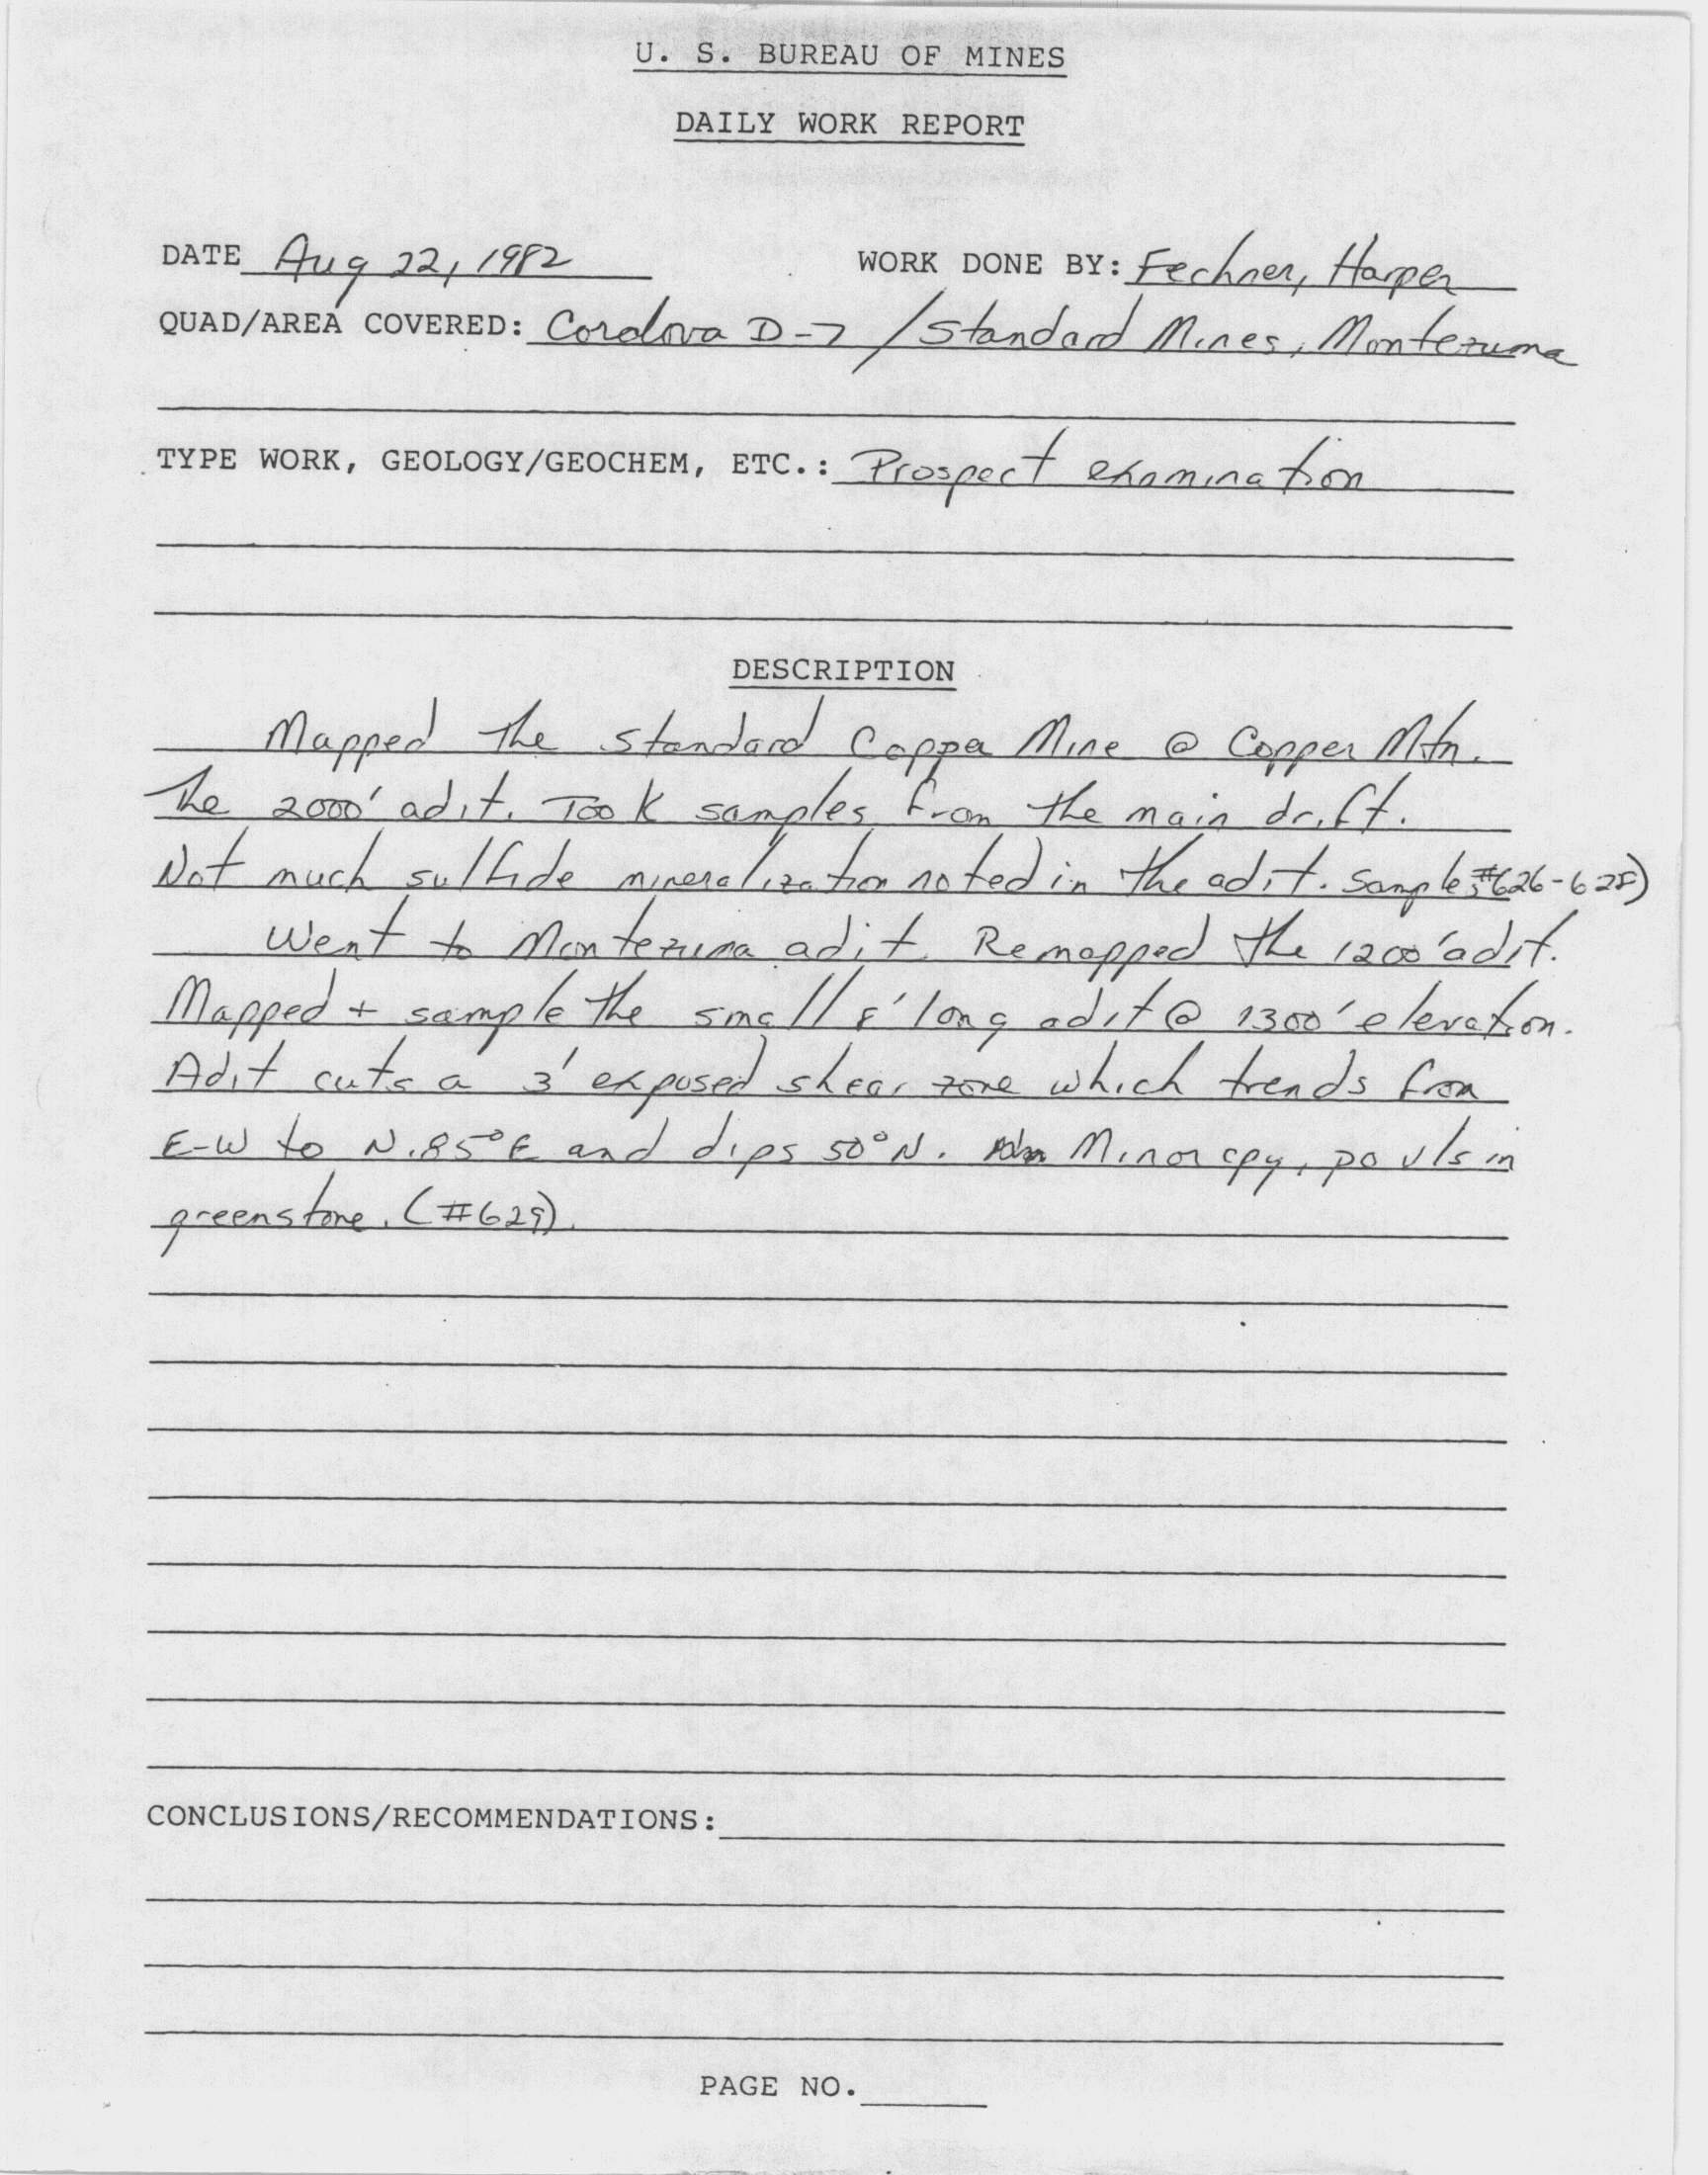 U. S. BUREAU OF MINES
DAILY WORK REPORT
DATE Aug 22, 1982 WORK DONE BY: Fechner, Harper
QUAD/AREA COVERED: Cordova D-7 / Standard Mines, Montezuma
TYPE WORK, GEOLOGY/GEOCHEM, ETC.: Prospect examination
DESCRIPTION
Mapped the Standard Copper Mine @ Copper Mtn.
The 2000' adit. Took samples from the main drift.
Not much sulfide mineralization noted in the adit. Samples #626-628)
Went to Montezuma adit. Remapped the 1200' adit.
Mapped + sample the small 8' long adit @ 1300' elevation.
Adit cuts a 3' exposed shear zone which trends from
E-W to N.85°E and dips 50°N. Minor cpy, po vls in
greenstone. (#629).
CONCLUSIONS/RECOMMENDATIONS:
PAGE NO.